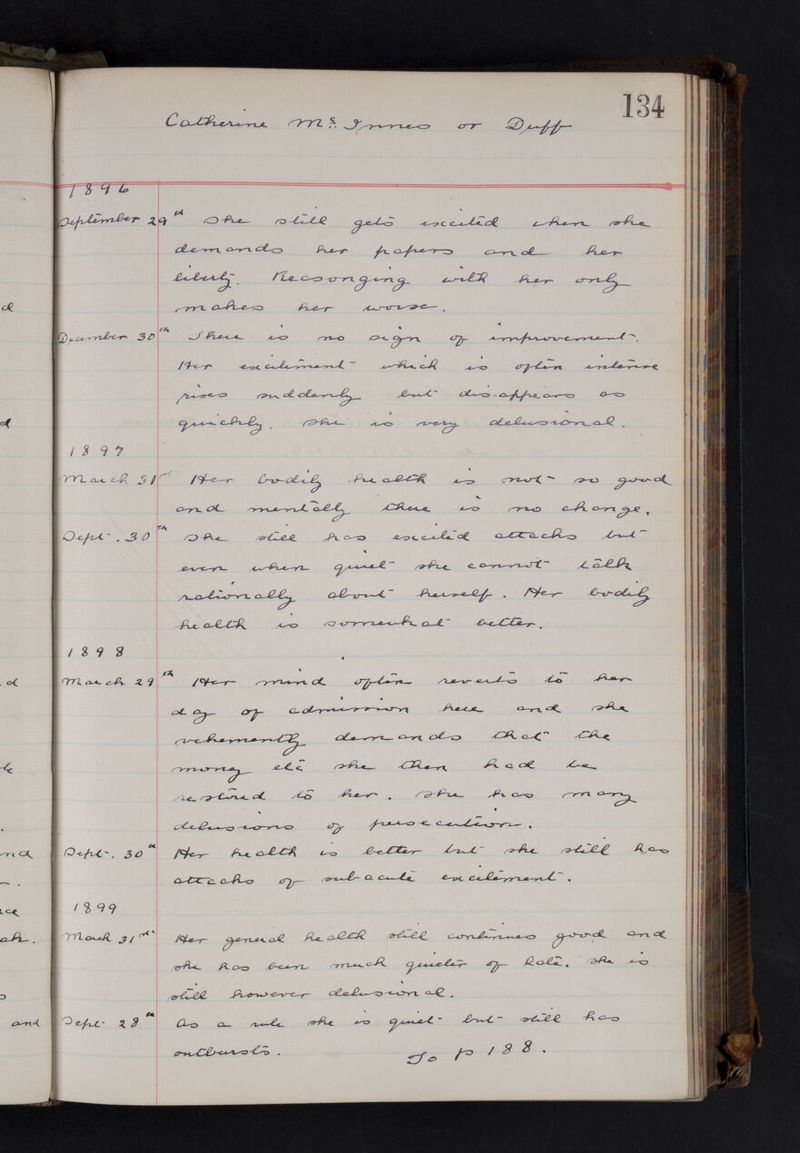 134
Catherine McInnes or Duff
1896
September 29th She still gets excited when she
demands her papers and her
liberty. Reasonging with her only
makes her worse.
December 30th There is no sign of improvement.
Her excitement which is often intense
rises suddenly but dis-appears as
quickly. She is very delusional.
1897
March 31st Her bodily health is not so good
and mentally there is no change.
Sept. 30th She still has excited attacks but
even when quiet she cannot talk
rationally about herself. Her bodily
health is somewhat better.
1898
March 29th Her mind often reverts to her
day of admission here and she
vehemently demands that the
money etc she then had be
restored to her. She has many
delusions of persecution.
Sept. 30th Her health is better but she still has
attacks of subacute excitement.
1899
March 31st Her general health still continues good and
she has been much quieter of late. She is
still however delusional.
Sept 28th As a rule she is quiet but still has
outbursts. To p 188.